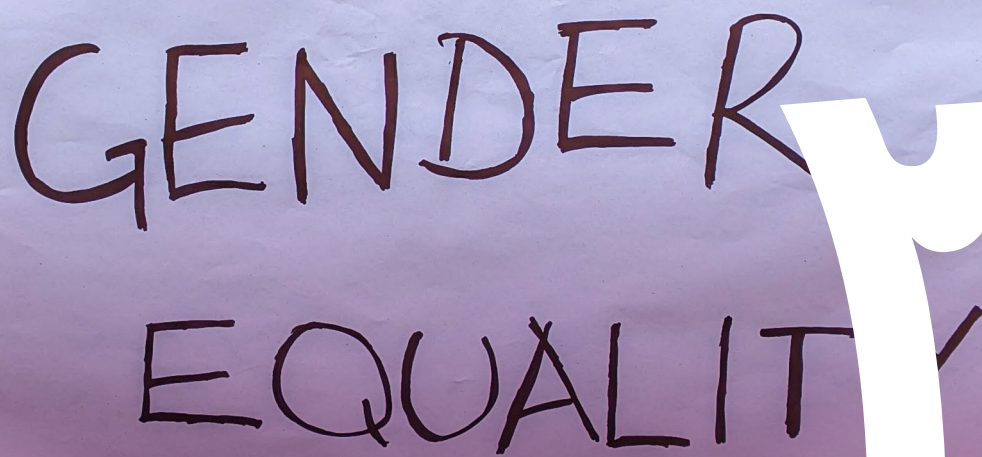 GENDER
EQUALITY
۲